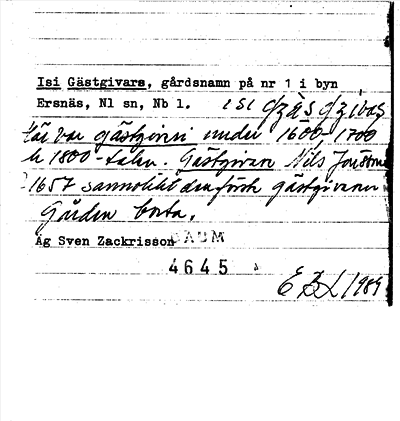 Isi Gästgivars, gårdsnamn på nr 1 i byn
Ersnäs, Nl sn, Nb l.
Här var gästgiveri under 1600- 1700
o 1800-talen. Gästgivare Nils Jonsson
1657 sannolikt den förste gästgivaren
Gården borta.
Ag Sven Zackrisson DAUM
4645
EBL 1989